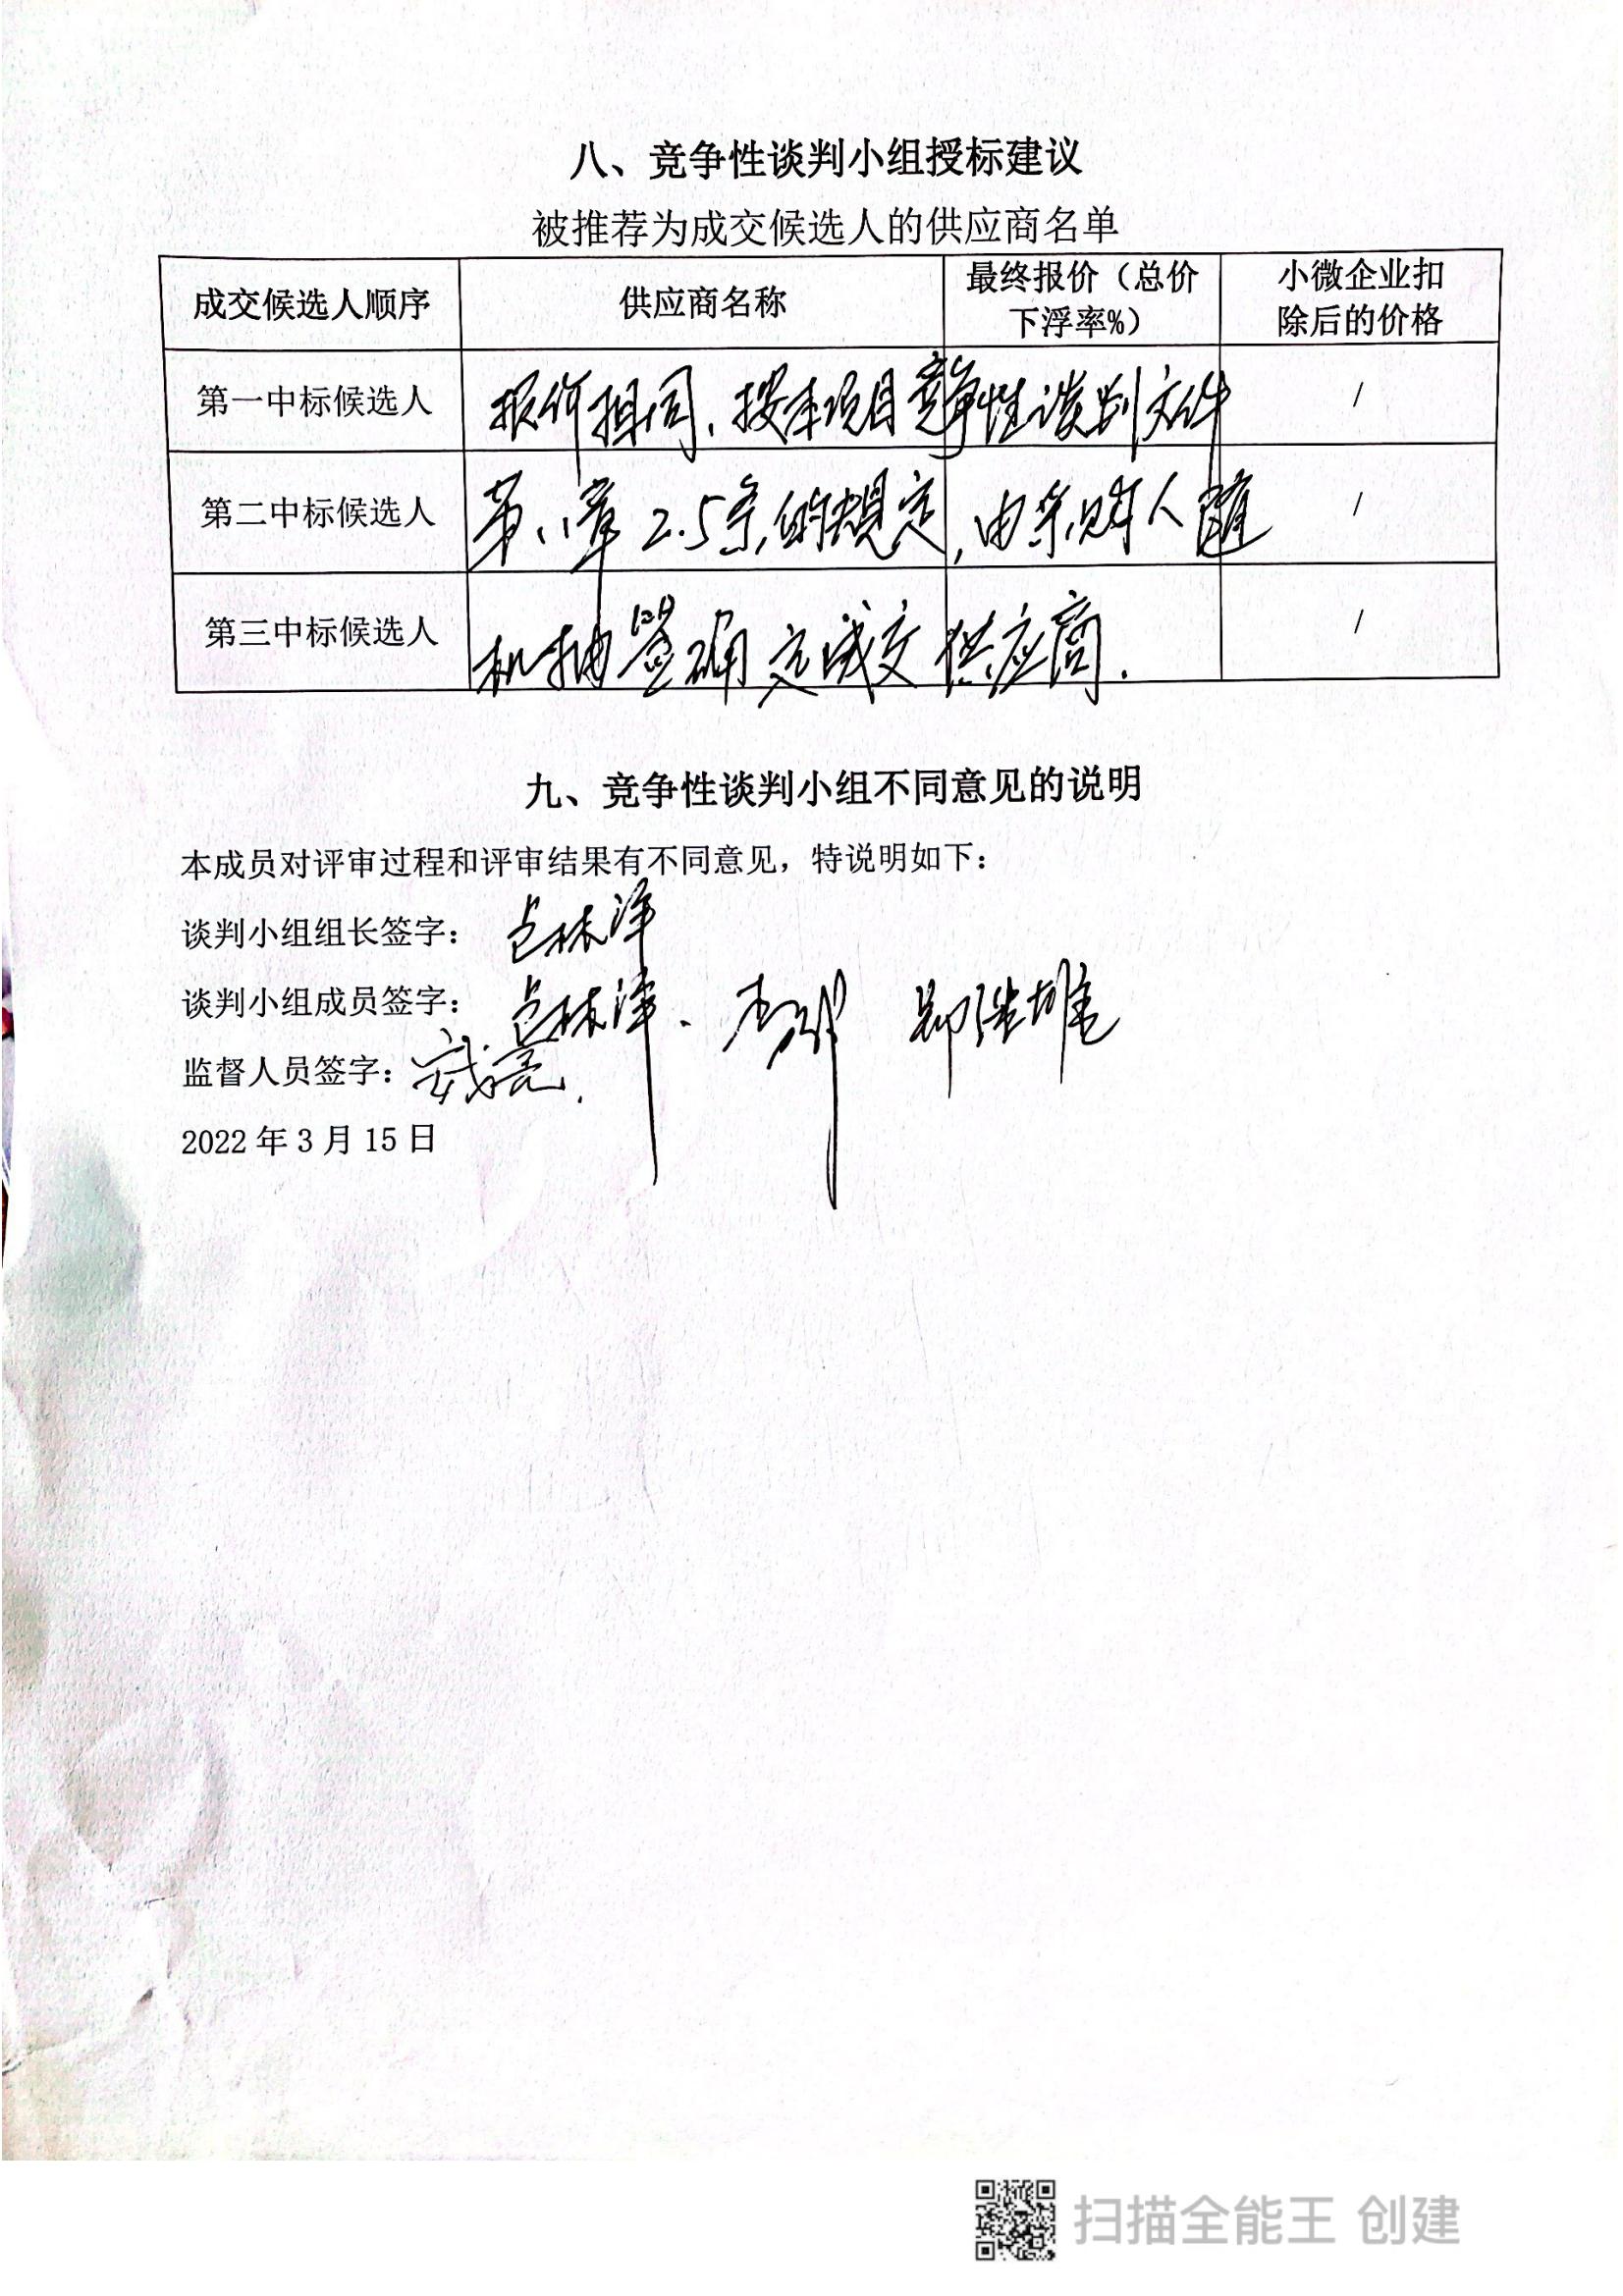 八、竞争性谈判小组授标建议
被推荐为成交候选人的供应商名单
成交候选人顺序 供应商名称 最终报价（总价下浮率%） 小微企业扣除后的价格
第一中标候选人 报价相同，按本项目竞争性谈判文件 /
第二中标候选人 第八章2.5条的规定，由采购人随 /
第三中标候选人 机抽签确定成交供应商. /
九、竞争性谈判小组不同意见的说明
本成员对评审过程和评审结果有不同意见，特说明如下：
谈判小组组长签字：
谈判小组成员签字：
监督人员签字：
2022年3月15日
扫描全能王 创建